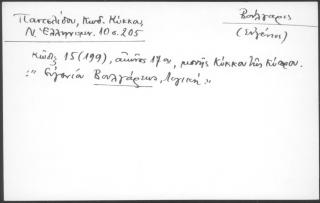 Παντελίδου, Κωδ. Κύκκου,
Ν. Ἑλληνομν. 10 σ. 205
Βούλγαρις
(Εὐγένιος)
Κῶδιξ 15 (199), αἰῶνος 17ου, μονῆς Κύκκου τῆς Κύπρου.
: "Εὐγενίου Βουλγάρεως, Λογική"